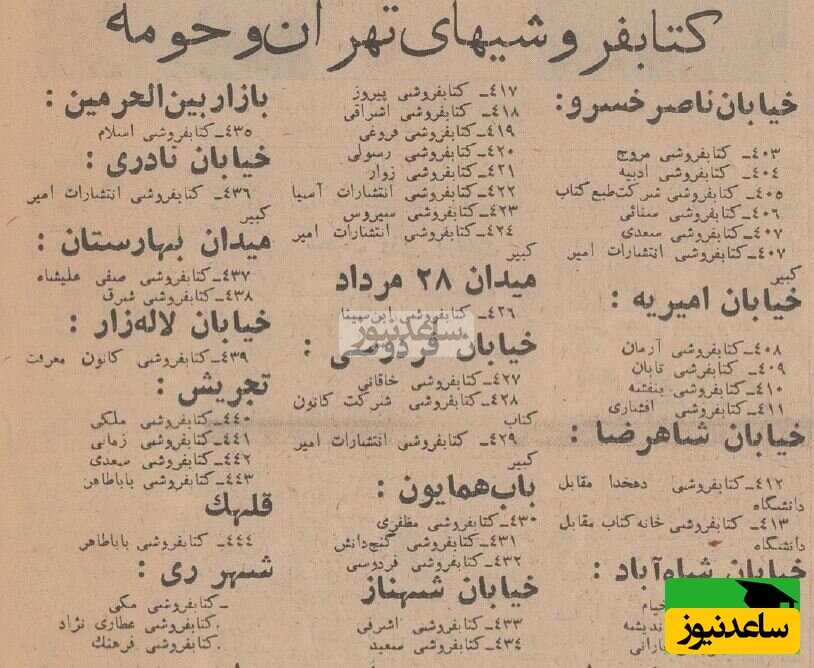 کتابفروشیهای تهران و حومه
خیابان ناصر خسرو:
۴۰۳ـ کتابفروشی مروج
۴۰۴ـ کتابفروشی ادبیه
۴۰۵ـ کتابفروشی شرکت طبع کتاب
۴۰۶ـ کتابفروشی سنائی
۴۰۷ـ کتابفروشی سعدی
۴۰۷ـ کتابفروشی انتشارات امیر
کبیر
خیابان امیریه :
۴۰۸ـ کتابفروشی آرمان
۴۰۹ـ کتابفرشی تابان
۴۱۰ـ کتابفروشی بنفشه
۴۱۱ـ کتابفروشی افشاری
خیابان شاهرضا :
۴۱۲ـ کتابفروشی دهخدا مقابل
دانشگاه
۴۱۳ـ کتابفروشی خانه کتاب مقابل
دانشگاه
خیابان شاه‌آباد :
خیام
ندیشه
بارانی
۴۱۷ـ کتابفروشی پیروز
۴۱۸ـ کتابفروشی اشراقی
۴۱۹ـ کتابفروشی فروغی
۴۲۰ـ کتابفروشی رسولی
۴۲۱ـ کتابفروشی زوار
۴۲۲ـ کتابفروشی انتشارات آسیا
۴۲۳ـ کتابفروشی سیروس
۴۲۴ـ کتابفروشی انتشارات امیر
کبیر
میدان ۲۸ مرداد
۴۲۶ـ کتابفروشی ابن‌سینا
خیابان فردوسی :
۴۲۷ـ کتابفروشی خاقانی
۴۲۸ـ کتابفروشی شرکت کانون
کتاب
۴۲۹ـ کتابفروشی انتشارات امیر
کبیر
باب‌همایون :
۴۳۰ـ کتابفروشی مظفری
۴۳۱ـ کتابفروشی گنج‌دانش
۴۳۲ـ کتابفروشی فردوسی
خیابان شهناز
۴۳۳ـ کتابفروشی اشرفی
۴۳۴ـ کتابفروشی سعید
بازار بین‌الحرمین :
۴۳۵ـ کتابفروشی اسلام
خیابان نادری :
۴۳۶ـ کتابفروشی انتشارات امیر
کبیر
میدان بهارستان :
۴۳۷ـ کتابفروشی صفی علیشاه
۴۳۸ـ کتابفروشی شرق
خیابان لاله‌زار :
۴۳۹ـ کتابفروشی کانون معرفت
تجریش :
۴۴۰ـ کتابفروشی ملکی
۴۴۱ـ کتابفروشی زمانی
۴۴۲ـ کتابفروشی سعدی
۴۴۳ـ کتابفروشی باباطاهر
قلهك
۴۴۴ـ کتابفروشی باباطاهر
شهر ری :
ـ کتابفروشی مکی
کتابفروشی عطاری نژاد
کتابفروشی فرهنك
ساعدنیوز
ساعدنیوز